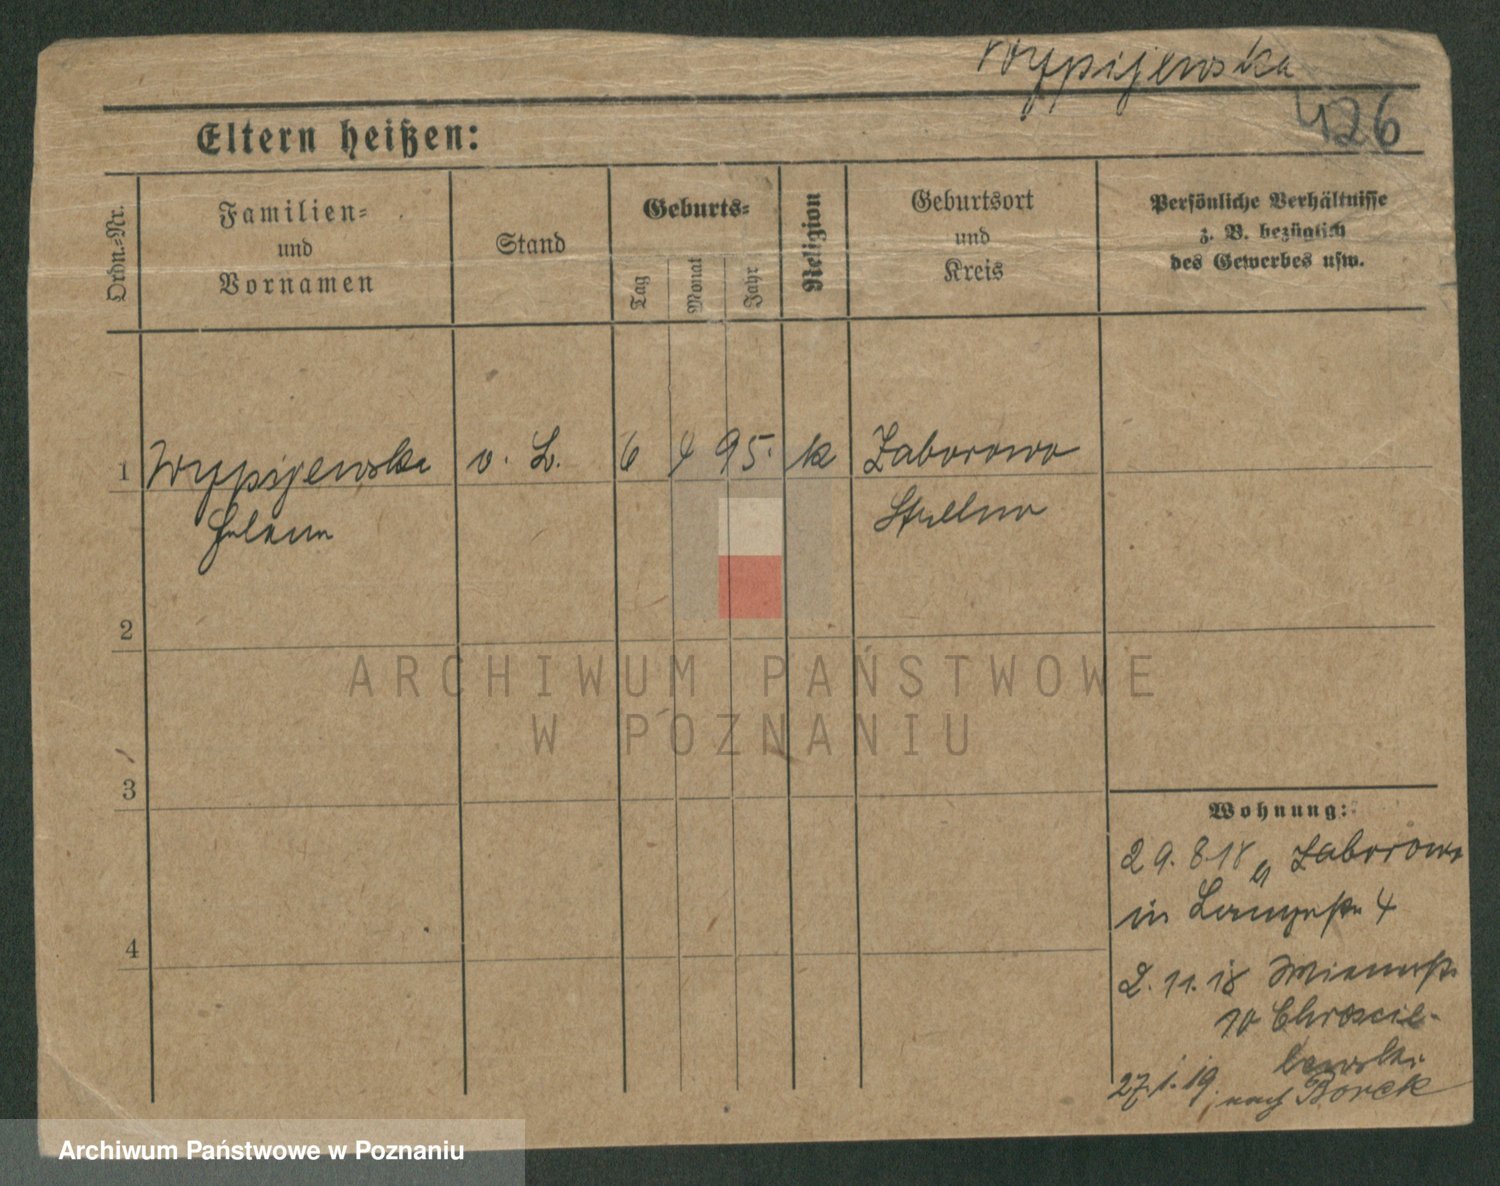 Wypijewska
426
Eltern heißen:
Ordn.-Nr.
Familien-
und
Vornamen
Stand
Geburts-
Tag
Monat
Jahr
Religion
Geburtsort
und
Kreis
Persönliche Verhältnisse
z. B. bezüglich
des Gewerbes usw.
1 Wypijewska o. L. 6 4 95. k Zaborowo
Helene Strelno
2
3
4
Wohnung:
29.8.18 Zaborowo
in 4
2.11.18
10 Chroscie-
lewski
27.1.19. nach Borek
ARCHIWUM PAŃSTWOWE
W POZNANIU
Archiwum Państwowe w Poznaniu